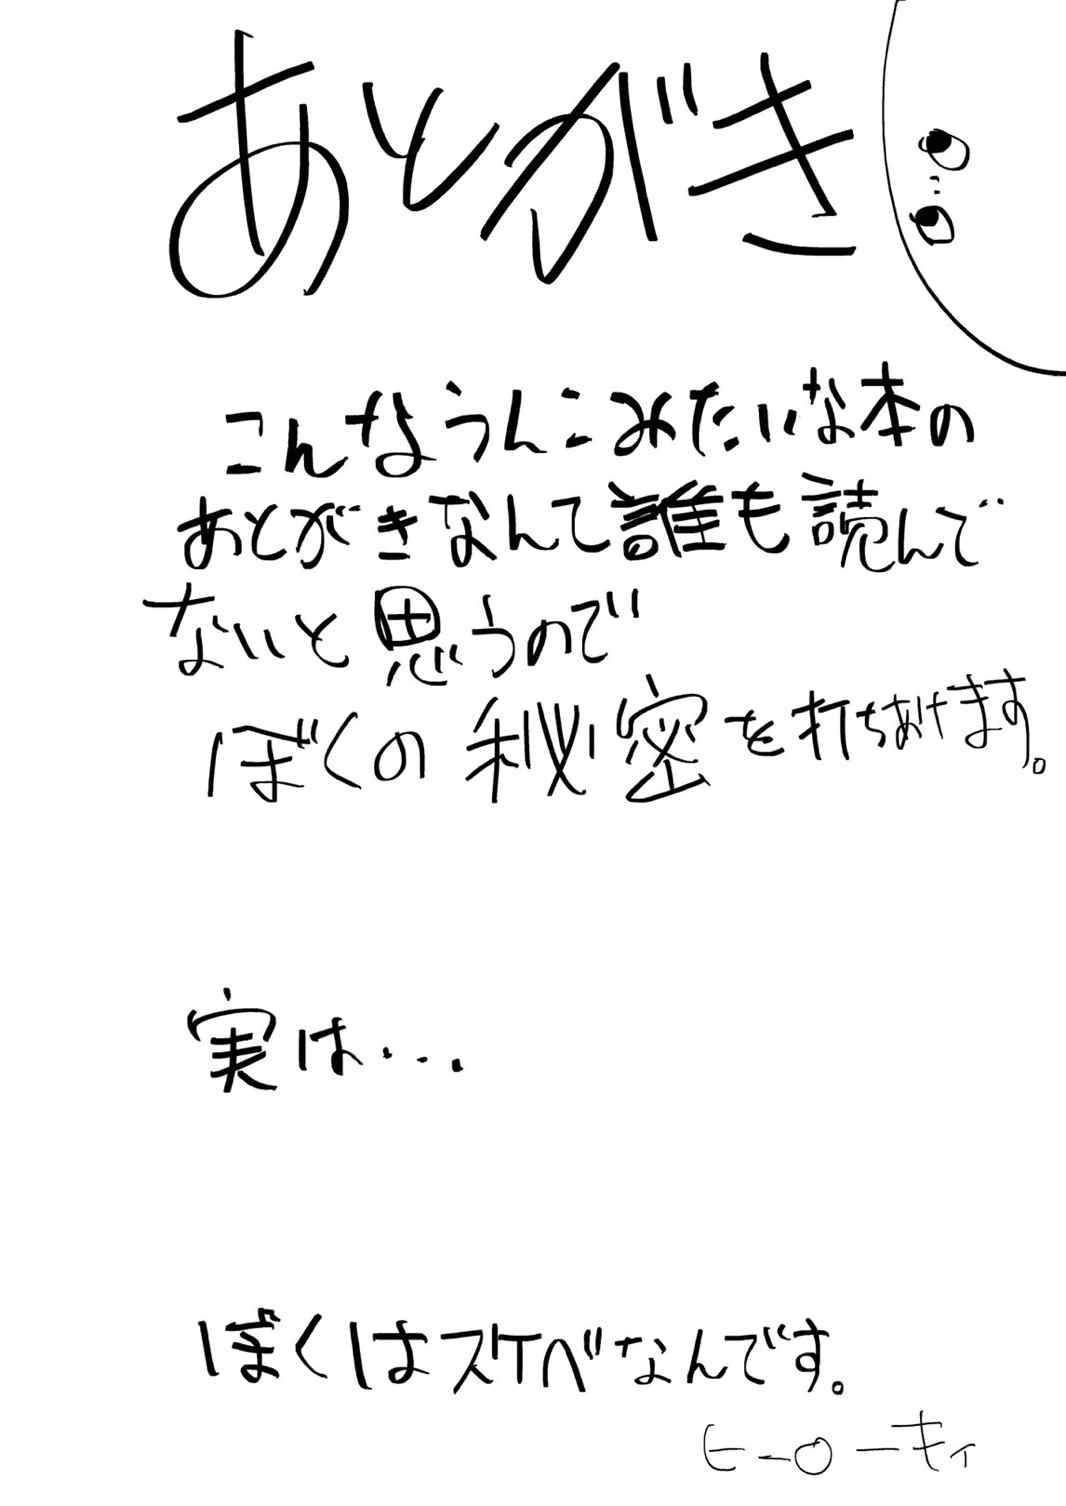 あとがき
こんなうんこみたいな本の
あとがきなんて誰も読んで
ないと思うので
ぼくの秘密を打ちあけます。
実は...
ぼくはスケベなんです。
ヒーローキィ